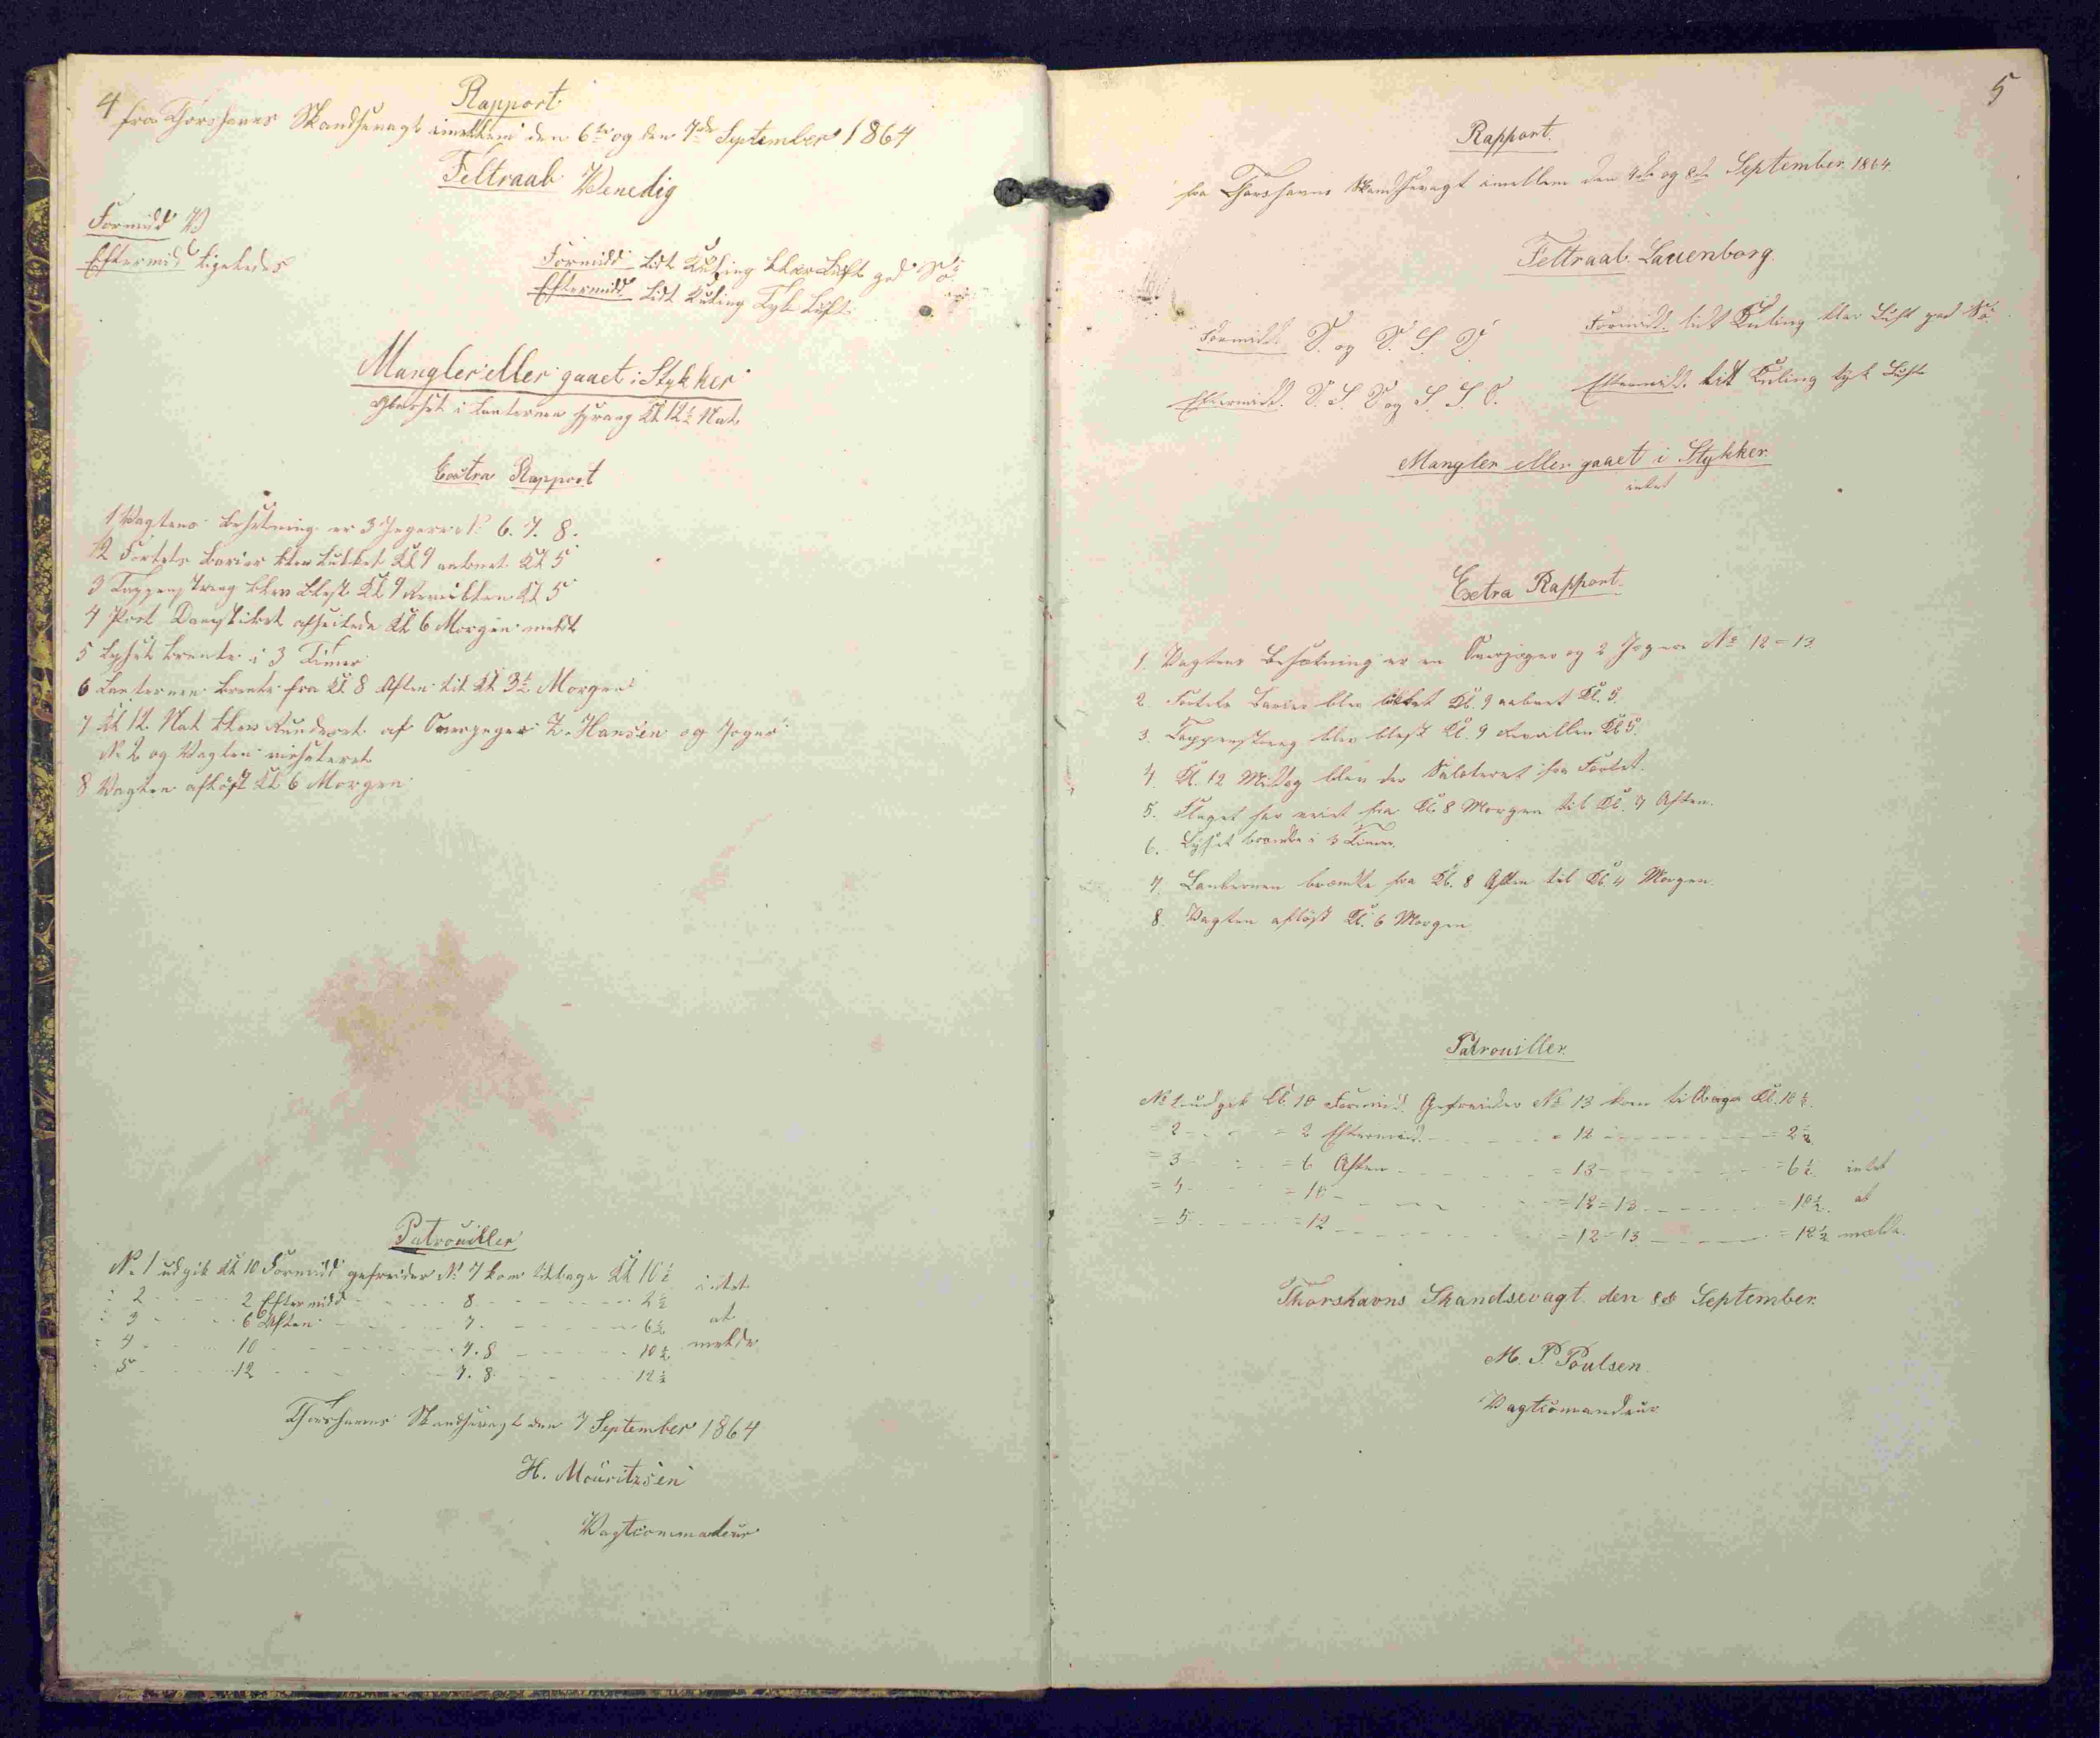 4
Rapport
fra Thorshavns Skandsevagt imellem den 6te og den 7de September 1864
Feltraab Venedig
Formidd V
Eftermid ligeledes
Formidd lidt Kuling klar Luft god Sö
Eftermidd lidt Kuling Tyk Luft
Mangler eller gaaet i Stykker
Glasset i Lanternen sprang Kl 12½ Nat
Extra Rapport
1 Vagtens besetning er 3 Jegere No 6. 7. 8.
2 Fortets barier blev lukket Kl 9 aabnet Kl 5
3 Tappenstreg blev blest Kl 9 Reveillen Kl 5
4 Post Dampskibet afseilede Kl 6 Morgen
5 Lyset brente i 3 Timer
6 Lanternen brente fra Kl 8 Aften til Kl 3½ Morgen
7 Kl 12 Nat blev Runderet af Overjeger Z. Hansen og Jeger
No 2 og Vagten visiteret
8 Vagten aflöst Kl 6 Morgen
Patrouiller
No 1 udgik Kl 10 Formidd gefreider No 7 kom tilbage Kl 10½ intet
= 2 - - - 2 Eftermidd - - - 8 - - - 2½
= 3 - - - 6 Aften - - - 7 - - - 6½ at
= 4 - - - 10 - - - 7. 8 - - - 10½ melde
= 5 - - - 12 - - - 7. 8 - - - 12½
Thorshavns Skandsevagt den 7 September 1864
H. Mouritzsen
Vagtcommadeur
5
Rapport.
fra Thorshavns Skandsevagt imellem den 7de og 8de September 1864.
Feltraab. Lauenborg.
Formidd. S. og S. S. V
Formidd. lidt Kuling klar Luft god Sö.
Eftermidd. S. S. V og S. S. O.
Eftermidd. lidt Kuling tyk Luft
Mangler eller gaaet i Stykker.
intet
Extra Rapport.
1. Vagtens Besætning er en Overjæger og 2 Jægere No 12 = 13.
2. Fortets Barier blev lukket Kl. 9 aabnet Kl. 5.
3. Tappenstreg blev blæst Kl. 9 Reveillen Kl 5.
4. Kl. 12 Middag blev der Saluteret fra Fortet.
5. Flaget har veiet fra Kl. 8 Morgen til Kl. 7 Aften.
6. Lyset brændte i 3 Timer.
7. Lanternen brændte fra Kl. 8 Aften til Kl. 4 Morgen.
8. Vagten aflöst Kl. 6 Morgen
Patrouiller.
No 1 udgik Kl. 10 Formid. Gefreider No 13 kom tilbage Kl. 10½.
= 2 - - - = 2 Eftermid. - - - = 12 - - - = 2½
= 3 - - - = 6 Aften - - - = 13 - - - = 6½ intet
= 4 - - - = 10 - - - = 12 = 13 - - - = 10½ at
= 5 - - - = 12 - - - = 12 = 13 - - - = 12½ melde.
Thorshavns Skandsevagt. den 8de September.
M. P. Poulsen.
Vagtcomandeur